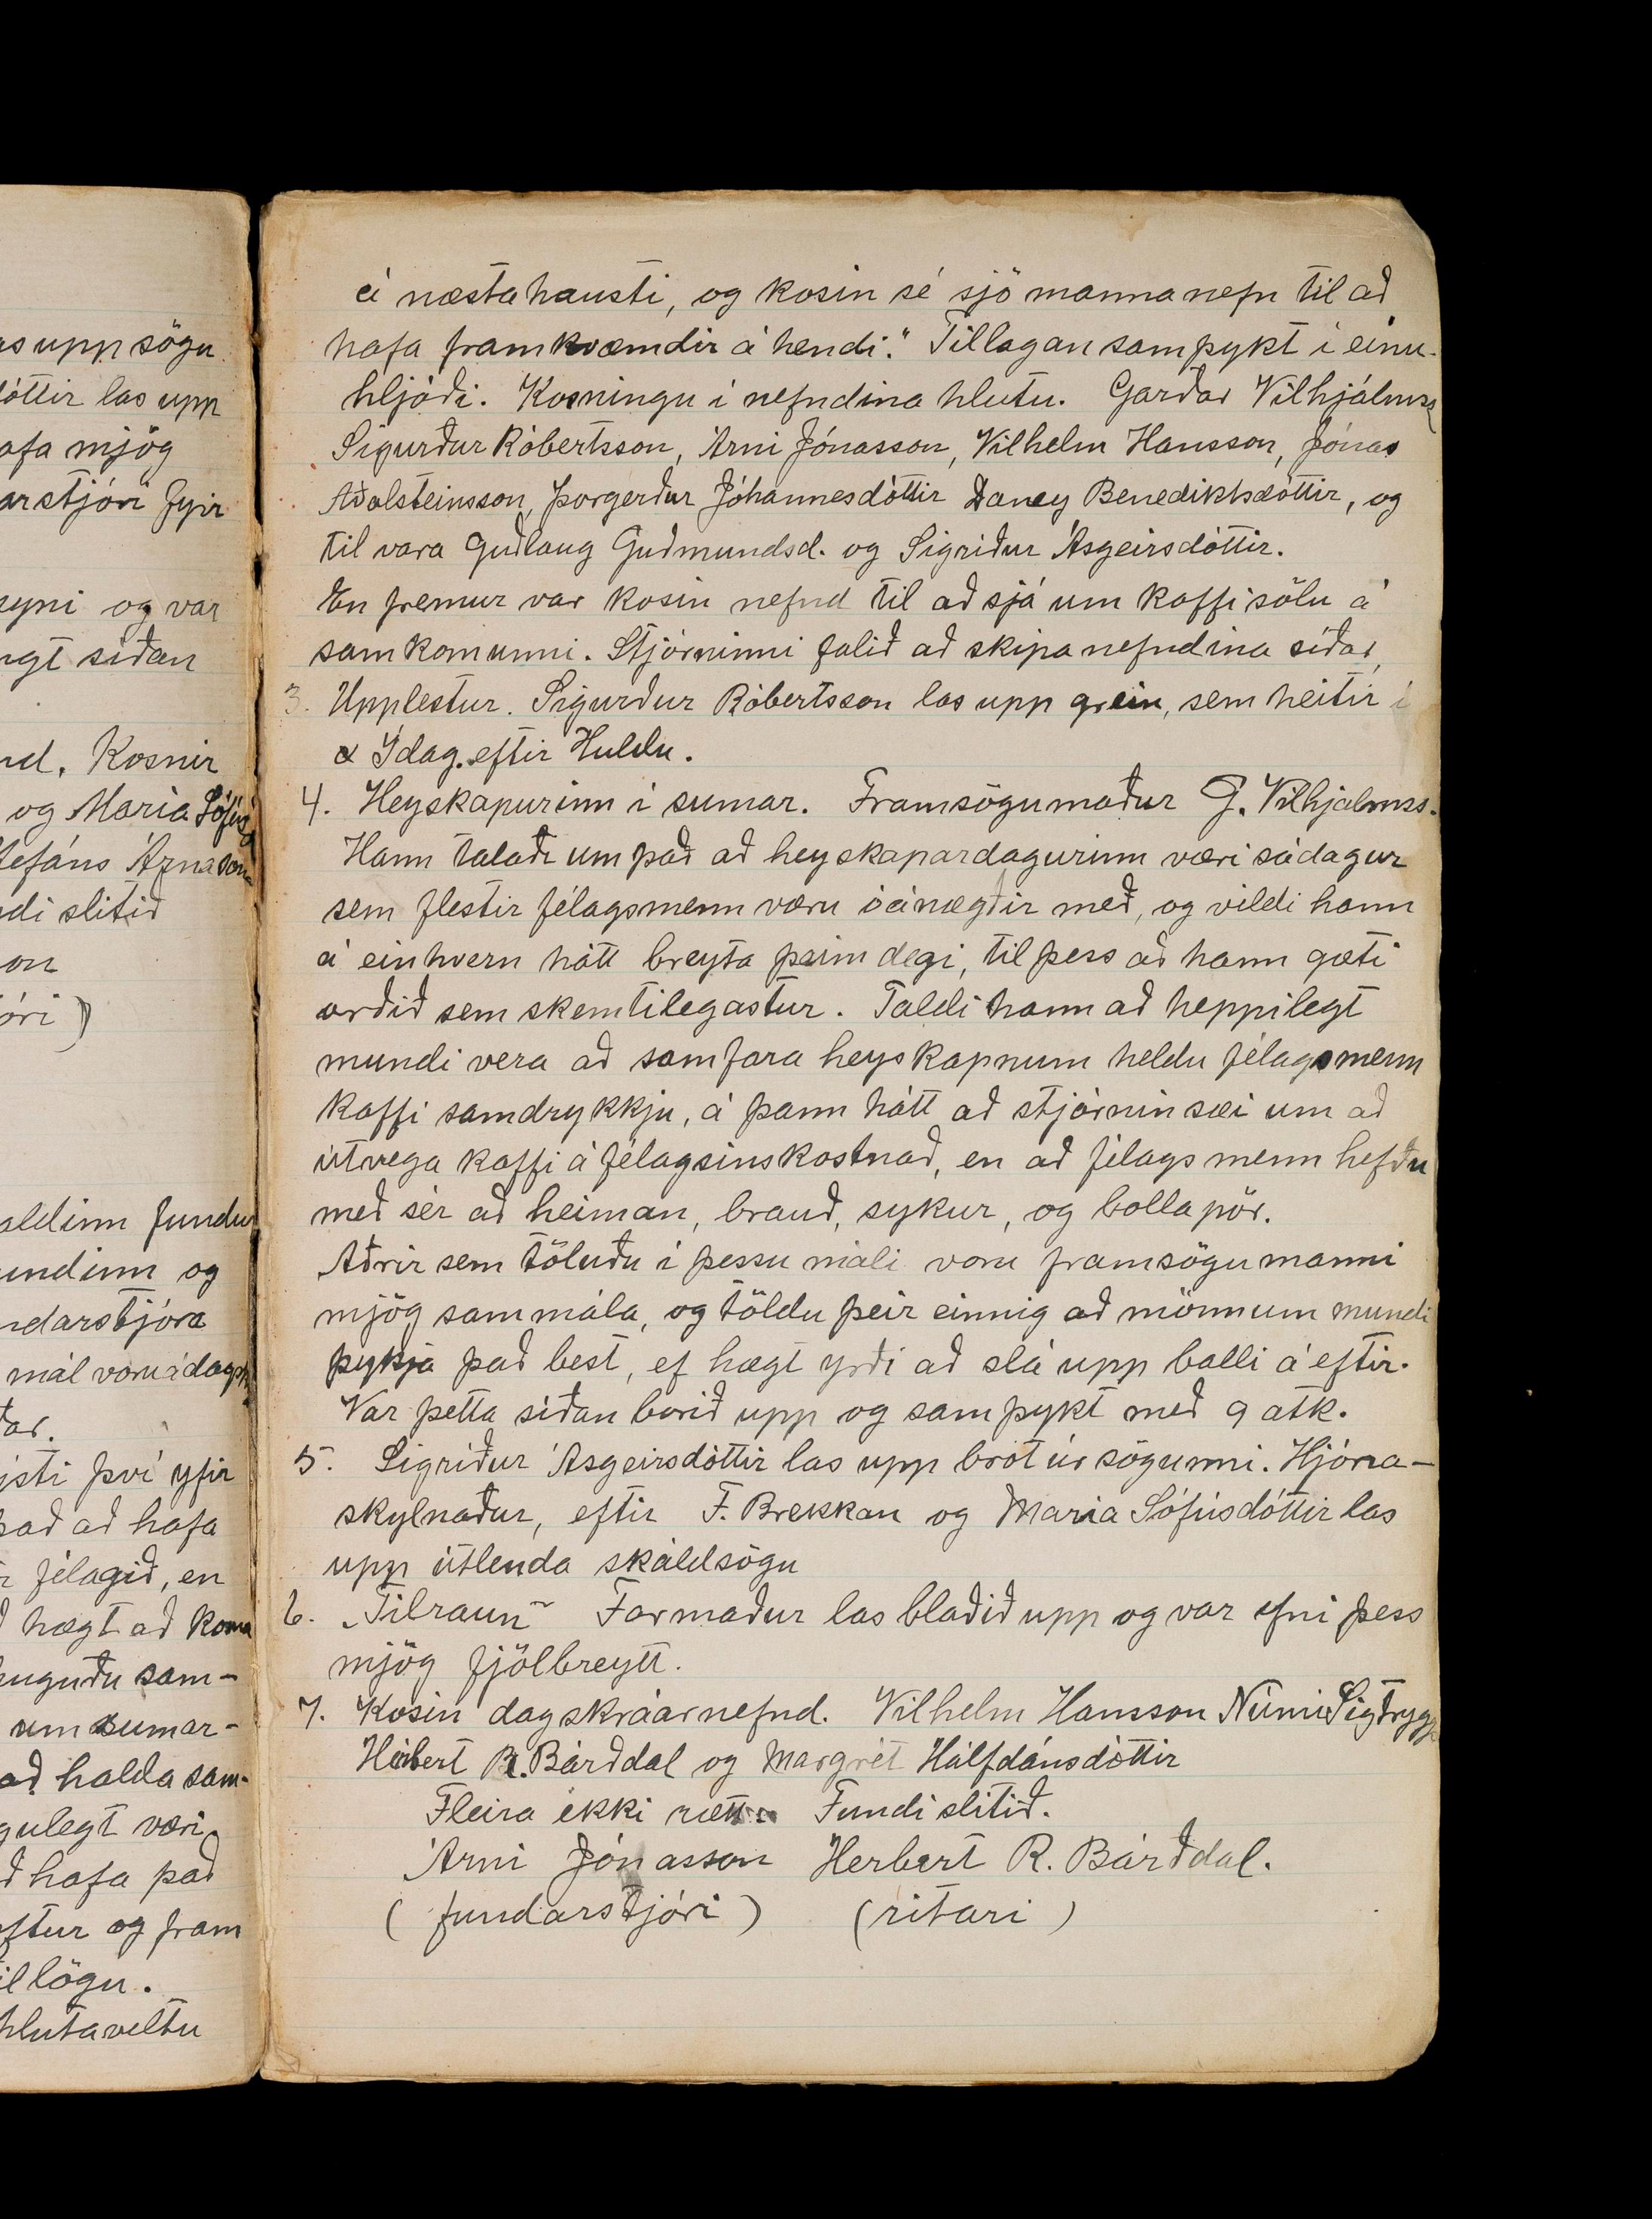 as upp sögu
dóttir las upp
afa mjög
arstjóri fyir
syni og var
ngt síðan
nd. Kosnir
og María Sófúsd
tefáns Árnason
di slitið
on
jóri)
aldinn fundur
undinn og
ndarstjóra
mál voru á dagsk
ðar.
ýsti því yfir
það að hafa
r félagið, en
ð hægt að koma
huguðu sam-
um sumar-
að halda sam-
gulegt væri
ð hafa það
aftur og fram
illögu.
hlutaveltu
á næsta hausti, og kosin sé sjö manna nefn til að
hafa framkvæmdir á hendi." Tillagan samþykt í einu-
hljóði. Kosningu í nefndina hlutu. Garðar Vilhjálmss
Sigurður Róbertsson, Árni Jónasson, Vilhelm Hansson, Jónas
Aðalsteinsson, Þorgerður Jóhannesdóttir Daney Benediktsdóttir, og
til vara Guðlaug Guðmundsd. og Sigríður Ásgeirsdóttir.
En fremur var kosin nefnd til að sjá um kaffisölu á
samkomunni. Stjórninni falið að skipa nefndina síðar
3. Upplestur. Sigurður Róbertsson las upp grein, sem heitir í
Ídag. eftir Huldu.
4. Heyskapurinn í sumar. Framsögumaður G. Vilhjálmss.
Hann talaði um það að heyskapardagurinn væri sá dagur
sem flestir félagsmenn væru óánægðir með, og vildi hann
á einhvern hátt breyta þeim degi, til þess að hann gæti
orðið sem skemtilegastur. Taldi hann að heppilegt
mundi vera að samfara heyskapnum heldu félagsmenn
kaffi samdrykkju, á þann hátt að stjórnin sæi um að
útvega kaffi á félagsins kostnað, en að félagsmenn hefðu
með sér að heiman, brauð, sykur, og bollapör.
Aðrir sem töluðu í þessu máli voru framsögumanni
mjög sammála, og töldu þeir einnig að mönnum mundi
þykja það best, ef hægt yrði að slá upp balli á eftir.
Var þetta síðan borið upp og samþykt með 9 atk.
5. Sigríður Ásgeirsdóttir las upp brot úr sögunni. Hjóna-
skylnaður, eftir F. Brekkan og María Sófúsdóttir las
upp útlenda skáldsögu
6. „Tilraun" Formaður las blaðið upp og var efni þess
mjög fjölbreytt.
7. Kosin dagskráarnefnd. Vilhelm Hansson Númi Sigtrygg
Herbert R. Bárðdal og Margrét Hálfdánsdóttir
Fleira ekki rætt. Fundi slitið.
Árni Jónasson Herbert R. Bárðdal.
(fundarstjóri) (ritari)